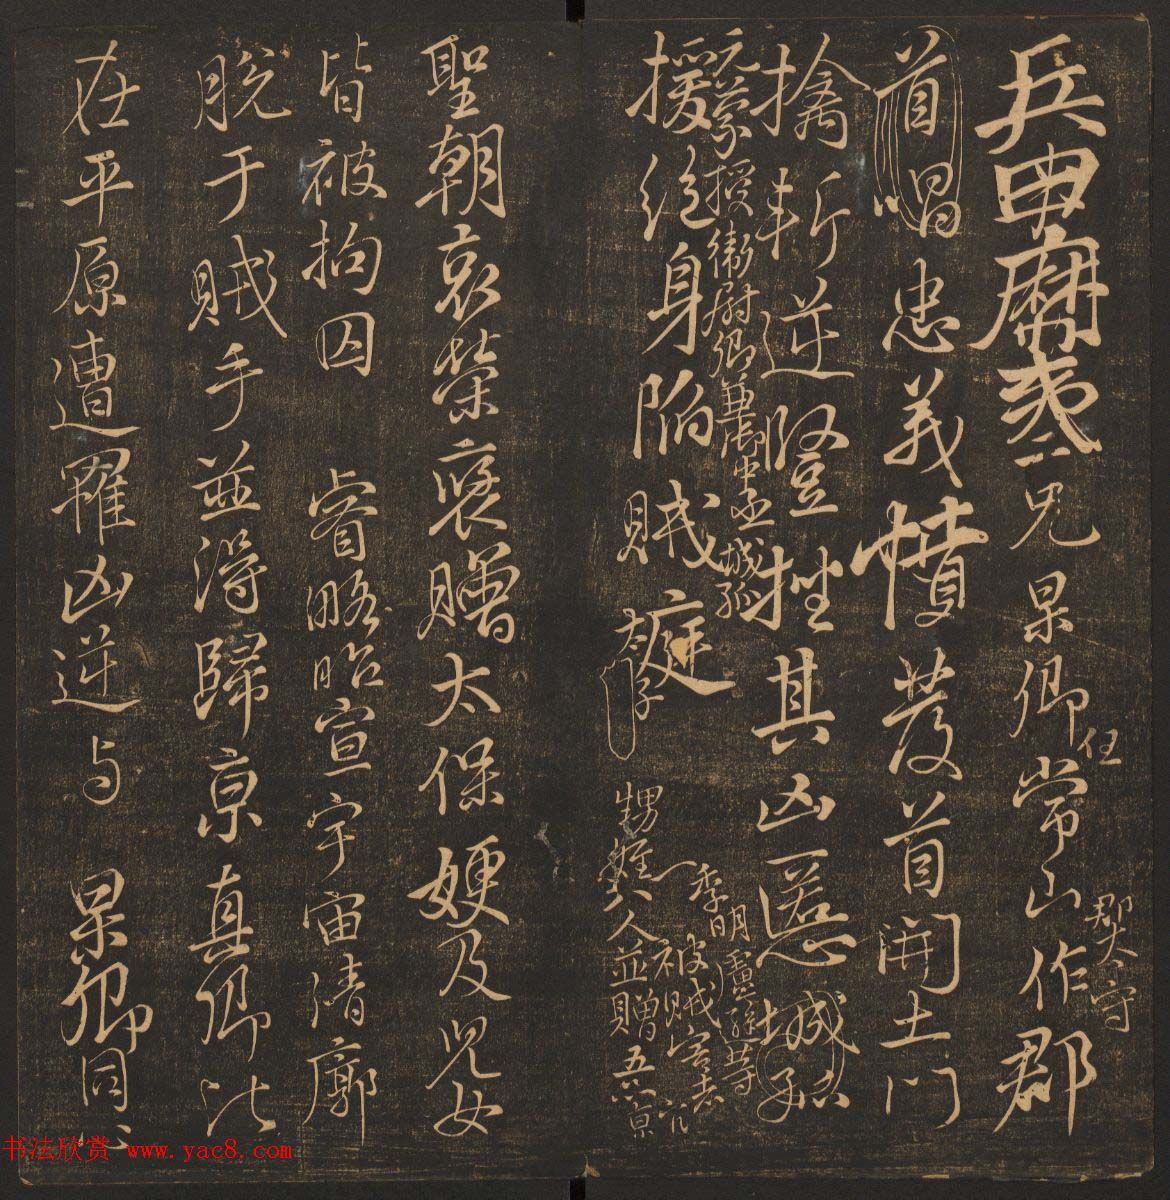 兵甲靡貳二兄杲卿任常山作郡
郡太守
首唱忠義憤發首開土門
擒斬逆豎挫其凶慝城孤
元蒙授衛尉卿兼御史中丞城孤
援絕身陷賊庭
太子
季明盧逖等
被賊害者
甥姪八人並贈五品京
聖朝哀榮褒贈太保嫂及兒女
皆被拘囚 睿略昭宣宇宙清廓
脫于賊手並得歸京真卿比
在平原遭罹凶逆與 杲卿同心
书法欣赏 www.yac8.com